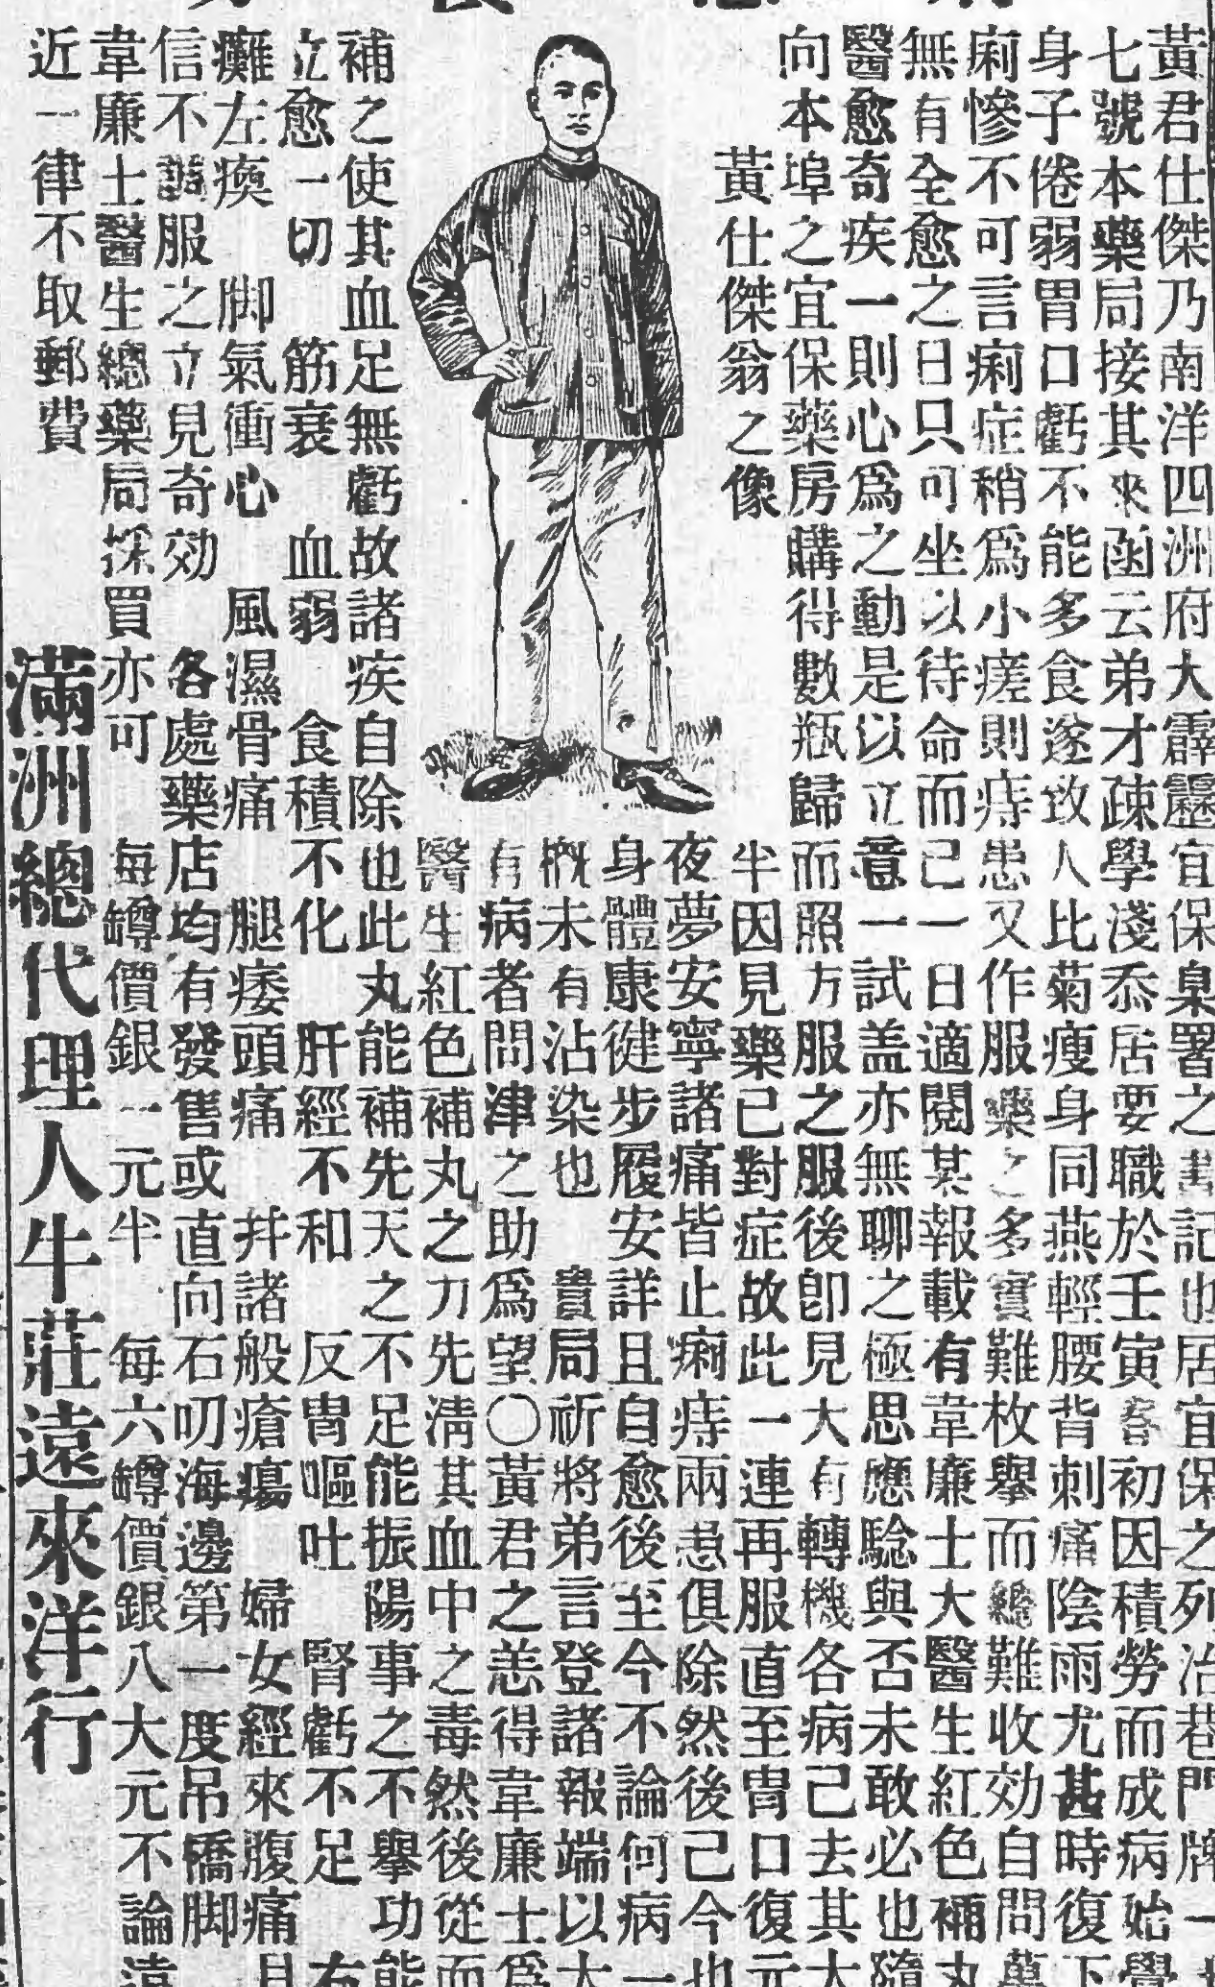 黃君仕傑乃南洋四洲府大霹靂宜保臬署之書記也居宜保之列治巷門牌一
七號本藥局接其來函云弟才疎學淺忝居要職於壬寅春初因積勞而成病始學
身子倦弱胃口虧不能多食遂致人比菊瘦身同燕輕腰背刺痛陰雨尤甚時復下
痢慘不可言痢症稍爲小瘥則痔患又作服藥之多實難枚舉而總難收効自問萬
無有全愈之日只可坐以待命而已一日適閱某報載有韋廉士大醫生紅色補丸
醫愈奇疾一則心爲之動是以立意一試盖亦無聊之極思應騐與否未敢必也隨
向本埠之宜保藥房購得數瓶歸而照方服之服後卽見大有轉機各病已去其大
黃仕傑翁之像
半因見藥已對症故此一連再服直至胃口復元
夜夢安寧諸痛皆止痢痔兩恙俱除然後已今也
身體康健步履安詳且自愈後至今不論何病一
概未有沾染也 貴局祈將弟言登諸報端以大
有病者問津之助爲望〇黃君之恙得韋廉士爲
醫生紅色補丸之力先淸其血中之毒然後從而
補之使其血足無虧故諸疾自除也此丸能補先天之不足能振陽事之不舉功能
立愈一切 筋衰 血弱 食積不化 肝經不和 反胃嘔吐 腎虧不足 右
癱左瘓 脚氣衝心 風濕骨痛 腿痿頭痛 幷諸般瘡瘍 婦女經來腹痛 月
信不調服之立見奇効 各處藥店均有發售或直向石叨海邊第一度吊橋脚
韋廉士醫生總藥局採買亦可 每罇價銀一元半 每六罇價銀八大元不論遠
近一律不取郵費
滿洲總代理人牛莊遠來洋行